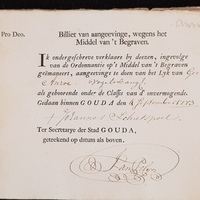 Pro Deo.
Billiet van aangeevinge, wegens het
Middel van 't Begraven.
Ik ondergeschreve verklaare by deezen, ingevolge
van de Ordonnantie op 't Middel van 't Begraven
geëmaneert, aangeevinge te doen van het Lyk van
als gehoorende onder de Classis van d' onvermogende.
Gedaan binnen GOUDA den 4 September 1773
Johannes
Ter Secretarye der Stad GOUDA,
getrekend op datum als boven.